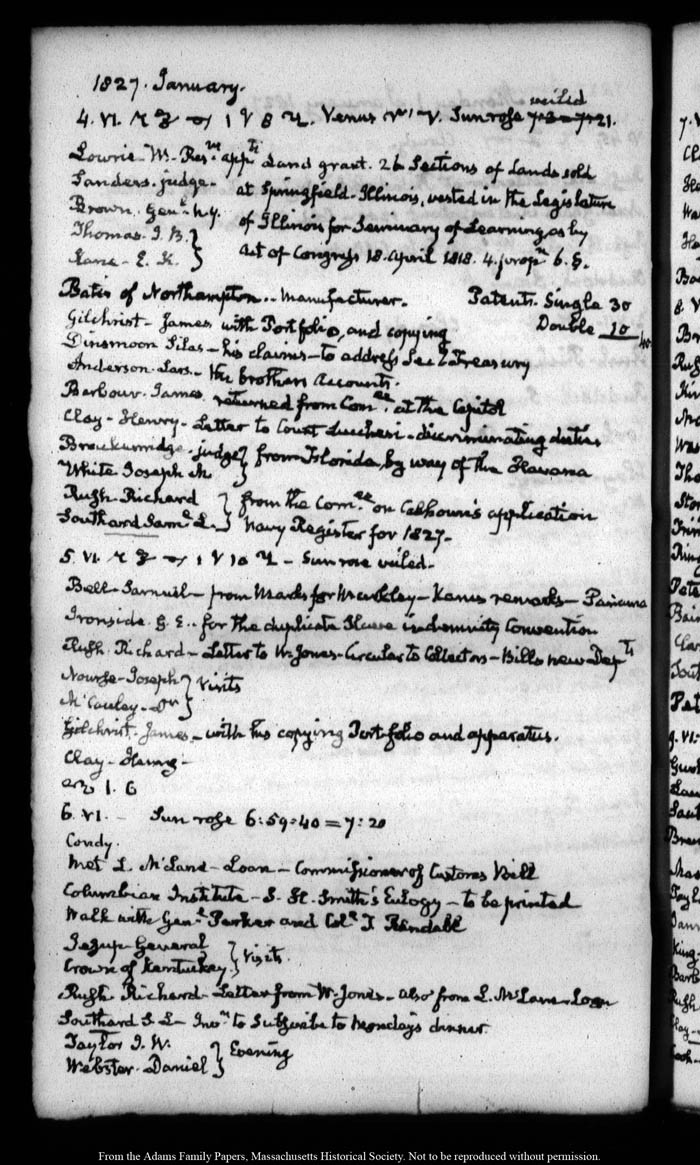 1827. January.
4. VI. Venus Sun rose veiled 7:21.
Lowrie W. Resns. appts Land grant. 26 Sections of Lands sold
Sanders. judge. at Springfield. Illinois, vested in the Legislature
Brown. Genl. N.Y. of Illinois for Seminary of Learning as by
Thomas. J. B. } Act of Congress 18. April 1818. 4. propn 6. §.
Kane - E. K.
Bates of Northampton.. Manufacturer. Patents. Single 30
Double 10
Gilchrist - James with Portfolio, and copying
Dinsmoor Silas - his claims - to address Secy Treasury
Anderson. Lars. - the brothers accounts.
Barbour. James returned from Comee. at the Capitol
Clay - Henry - Letter to Count Lucchesi - discriminating duties
Breckenridge. judge } from Florida, by way of the Havana
White Joseph M
Rush Richard } from the Comee. on Calhoun's application
Southard Saml. L. } Navy Register for 1827.
5. VI. - Sun rose veiled.
Bell - Samuel - from Marks for Markley - Kanes remarks - Panama
Ironside. G. E. - for the duplicate Slave indemnity Convention
Rush. Richard - Letter to W. Jones - Circular to Collectors - Bills new Depts
Nourse - Joseph } Visits
McCauley - Dr
Gilchrist - James - with his copying Portfolio and apparatus.
Clay - Henry -
1. 6
6. VI. - Sun rose 6:59:40 = 7:20
Condy.
Met L. McLane - Loan - Commissioner of Customs Bill
Columbian Institute - S. H. Smith's Eulogy - to be printed
Walk with Genl. Parker and Coll. T Randall
Jesup - General } Visits.
Crown of Kentucky
Rush Richard - Letter from W. Jones - also from L. McLane - Loan
Southard S. L - Invn to Subscribe to Monday's dinner
Taylor J. W. } Evening
Webster. Daniel
From the Adams Family Papers, Massachusetts Historical Society. Not to be reproduced without permission.